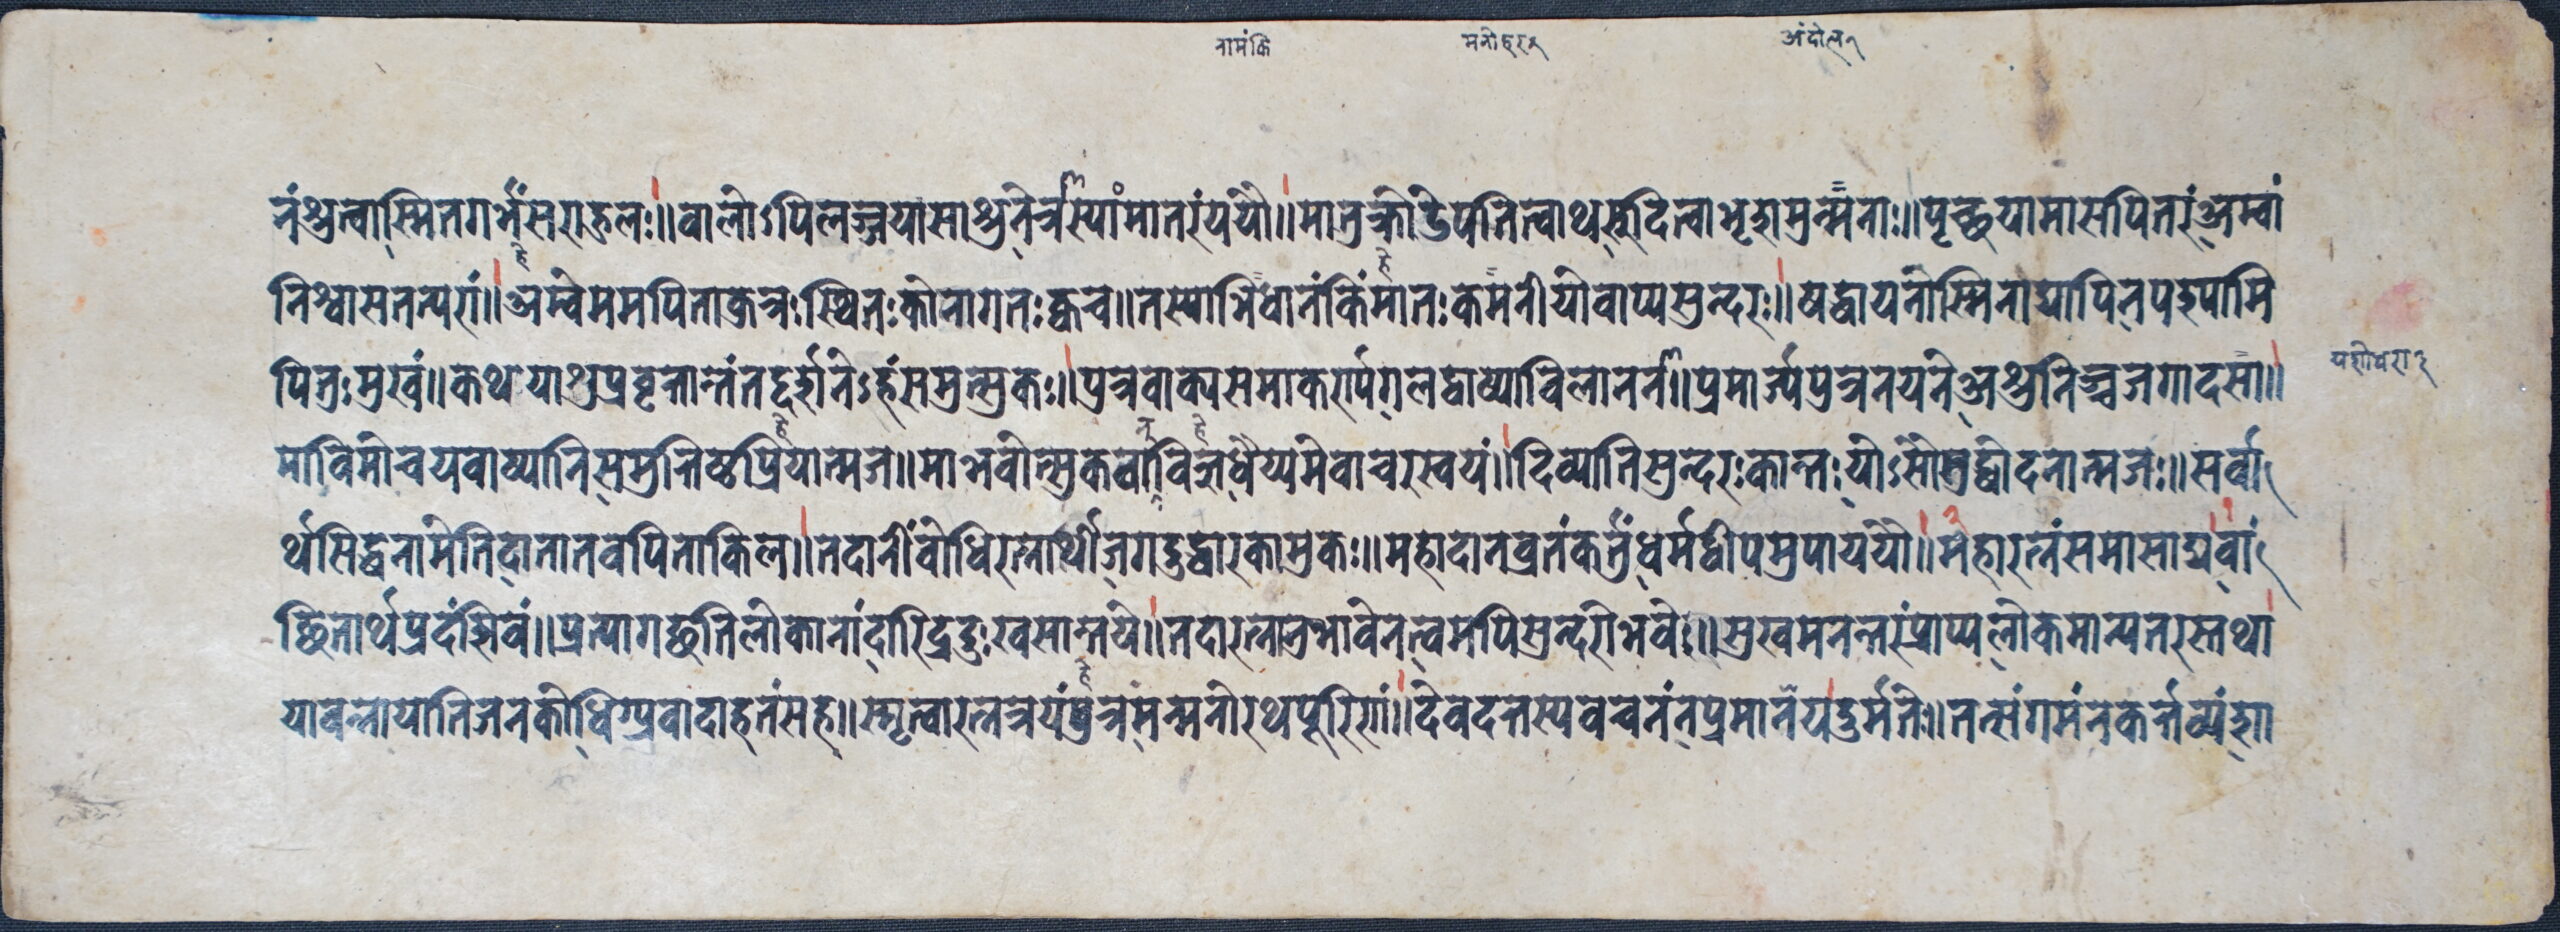 नामंकि मनोहर १ अंदोल १
नंश्रुत्वास्मितगर्भंसराकुलः॥वालोऽपिलज्जयासाश्रुनेत्रस्यांमातरंययौ॥मातुःक्रोडेपतित्वाथरुदित्वाभृशमुन्मनाः॥पृच्छयामासपितरंअम्वां
निश्वासतत्परां॥अम्वेममपिताकुत्रःस्थितःकोनागतःक्वच॥तस्याभिधानंकिंमातःकमनीयोवाप्यसुन्दरः॥षद्वायनोस्मिनाद्यापिनपश्यामि
पितुःमुखं॥कथयाश्रुप्रवृत्तान्तंतद्दर्शनेऽहंसमुत्सुकः॥पुत्रवाक्यसमाकर्ण्यगलद्वाष्याविलानन॥प्रमार्ज्यपुत्रनयनेअश्रुनिच्चजगादसा॥
माविमोचयवाष्यानिसमुत्तिष्ठप्रियात्मज॥माभवोत्सुकवाविज्ञधैय्यमेवाचरस्वयं॥दिव्यातिसुन्दरःकान्तःयोऽसौसुद्धोदनात्मजः॥सर्वा
र्थसिद्धनामेतिदातातवपिताकिल॥तदानींवोधिरत्नार्थीजगदुद्धारकामुकः॥महादानव्रतंकर्तुंधर्मद्वीपमुपाययौ॥महारत्नंसमासाद्यवां
च्छितार्थप्रदंसिवं॥प्रत्यागच्छतिलोकानांदारिद्रदुःखसान्तये॥तदारत्नानुभावेनत्वमपिसुन्दरोभवेः॥सुखमनन्तरंप्राप्यलोकमान्यतरस्तथा
यावन्नायातिजनकोधिग्प्रवादाहतंसह॥स्मृत्वारत्नत्रयंपुत्रंमन्मनोरथपूरिणां॥देवदत्तस्यवचनंनप्रमानंयदुर्मतेः॥तत्संगमंनकर्त्तव्यंशा